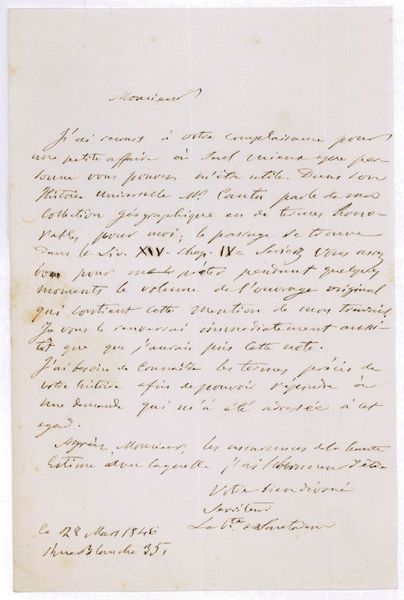 Monsieur
J'ai recours à votre complaisance pour
une petite affaire à mieux que per-
sonne vous pouvez m'être utile. Dans son
Histoire universelle Mr. Cantu parle de ma
Collection géographique en de termes hono-
rables pour moi; le passage se trouve
dans le Liv. XIV - chap. IX = Seriez vous assez
bon pour me prêter pendant quelques
moments le volume de l'ouvrage original
qui contient cette mention de mon travail.
Je vous le renverrai immédiatement aussi-
tôt que que j'aurais pris cette note.
J'ai besoin de connaître les termes précis de
votre histoire afin de pouvoir répondre à
une demande qui m'a été adressée à cet
égard.
Agréez, Monsieur, les assurances de la haute
Estime avec laquelle j'ai l'honneur d'être
Votre bien dévoué
Serviteur
Le Vte. de Santarem
Ce 28 Mars 1846
Rue Blanche 35,